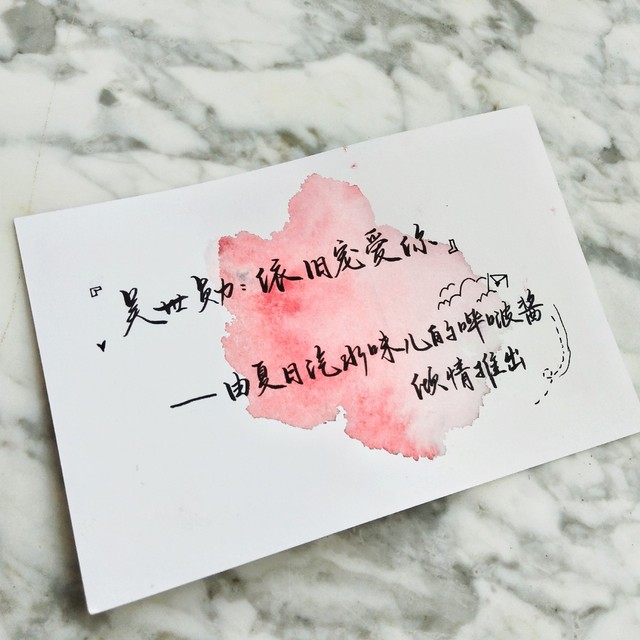 『吴世勋:依旧宠爱你』
——由夏日汽水味儿的哔啵酱
倾情推出